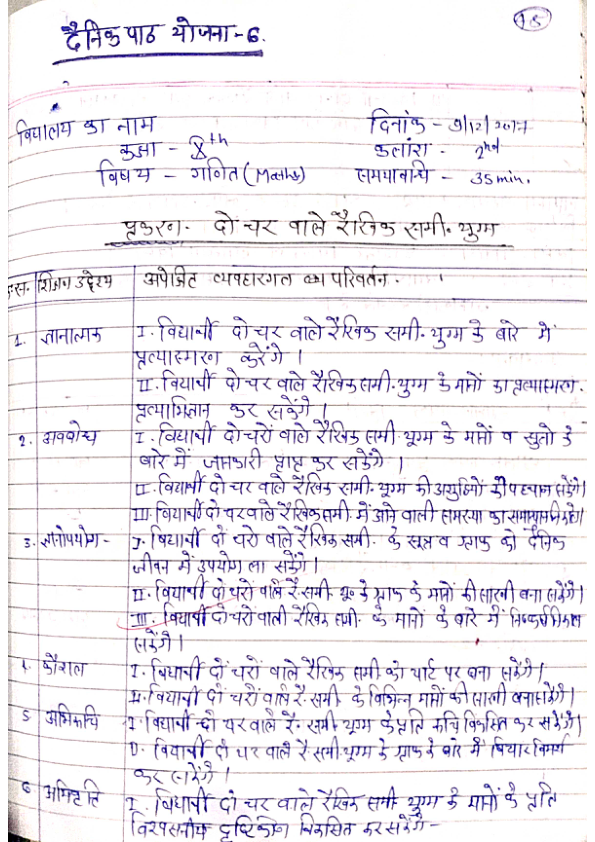 दैनिक पाठ योजना-6.
विद्यालय का नाम
दिनांक - 9/12/2017
कक्षा - Xth
कलांश - 2nd
विषय - गणित (Maths)
समयावधि - 35 min.
प्रकरण- दो चर वाले रैखिक समी. युग्म
क्र.स. शिक्षण उद्देश्य अपेक्षित व्यवहारगत का परिवर्तन.
1. ज्ञानात्मक I. विद्यार्थी दो चर वाले रैखिक समी. युग्म के बारे में
प्रत्यास्मरण करेंगे।
II. विद्यार्थी दो चर वाले रैखिक समी. युग्म के मानों का प्रत्यास्मरण.
प्रत्याभिज्ञान कर सकेंगे।
2. अवबोध I. विद्यार्थी दो चरों वाले रैखिक समी. युग्म के मानों व सुत्रो के
बारे में जानकारी प्राप्त कर सकेंगे।
II. विद्यार्थी दो चर वाले रैखिक समी. युग्म की अशुद्धियों की पहचान सकेंगे।
III. विद्यार्थी दो चर वाले रैखिक समी. में आने वाली समस्या का समाधान
3. ज्ञानोपयोग- I. विद्यार्थी दो चरो वाले रैखिक समी. के सूत्र व ग्राफ को दैनिक
जीवन में उपयोग ला सकेंगे।
II. विद्यार्थी दो चरों वाले रै. समी. यु. के ग्राफ के मानों की सारणी बना सकेंगे।
III. विद्यार्थी दो चरों वाली रैखिक समी. के मानों के बारे में निष्कर्ष निकाल
सकेंगे।
4. कौशल I. विद्यार्थी दो चरों वाले रैखिक समी को चार्ट पर बना सकेंगे।
II. विद्यार्थी दो चरों वाले रै. समी. के विभिन्न मानों की सारणी बना सकेंगे।
5 अभिरूचि I. विद्यार्थी दो चर वाले रै. समी. युग्म के प्रति रूचि विकसित कर सकेंगे।
II. विद्यार्थी दो चर वाले रै समी. युग्म के ग्राफ के बारे में विचार विमर्श
कर सकेंगे।
6 अभिवृत्ति I. विद्यार्थी दो चर वाले रैखिक समी. युग्म के मानों के प्रति
विश्वसनीय दृष्टिकोण विकसित कर सकेंगे-